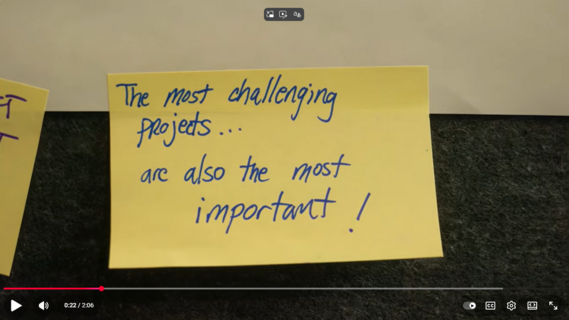 The most challenging
projects...
are also the most
important!
0:22 / 2:06
CC